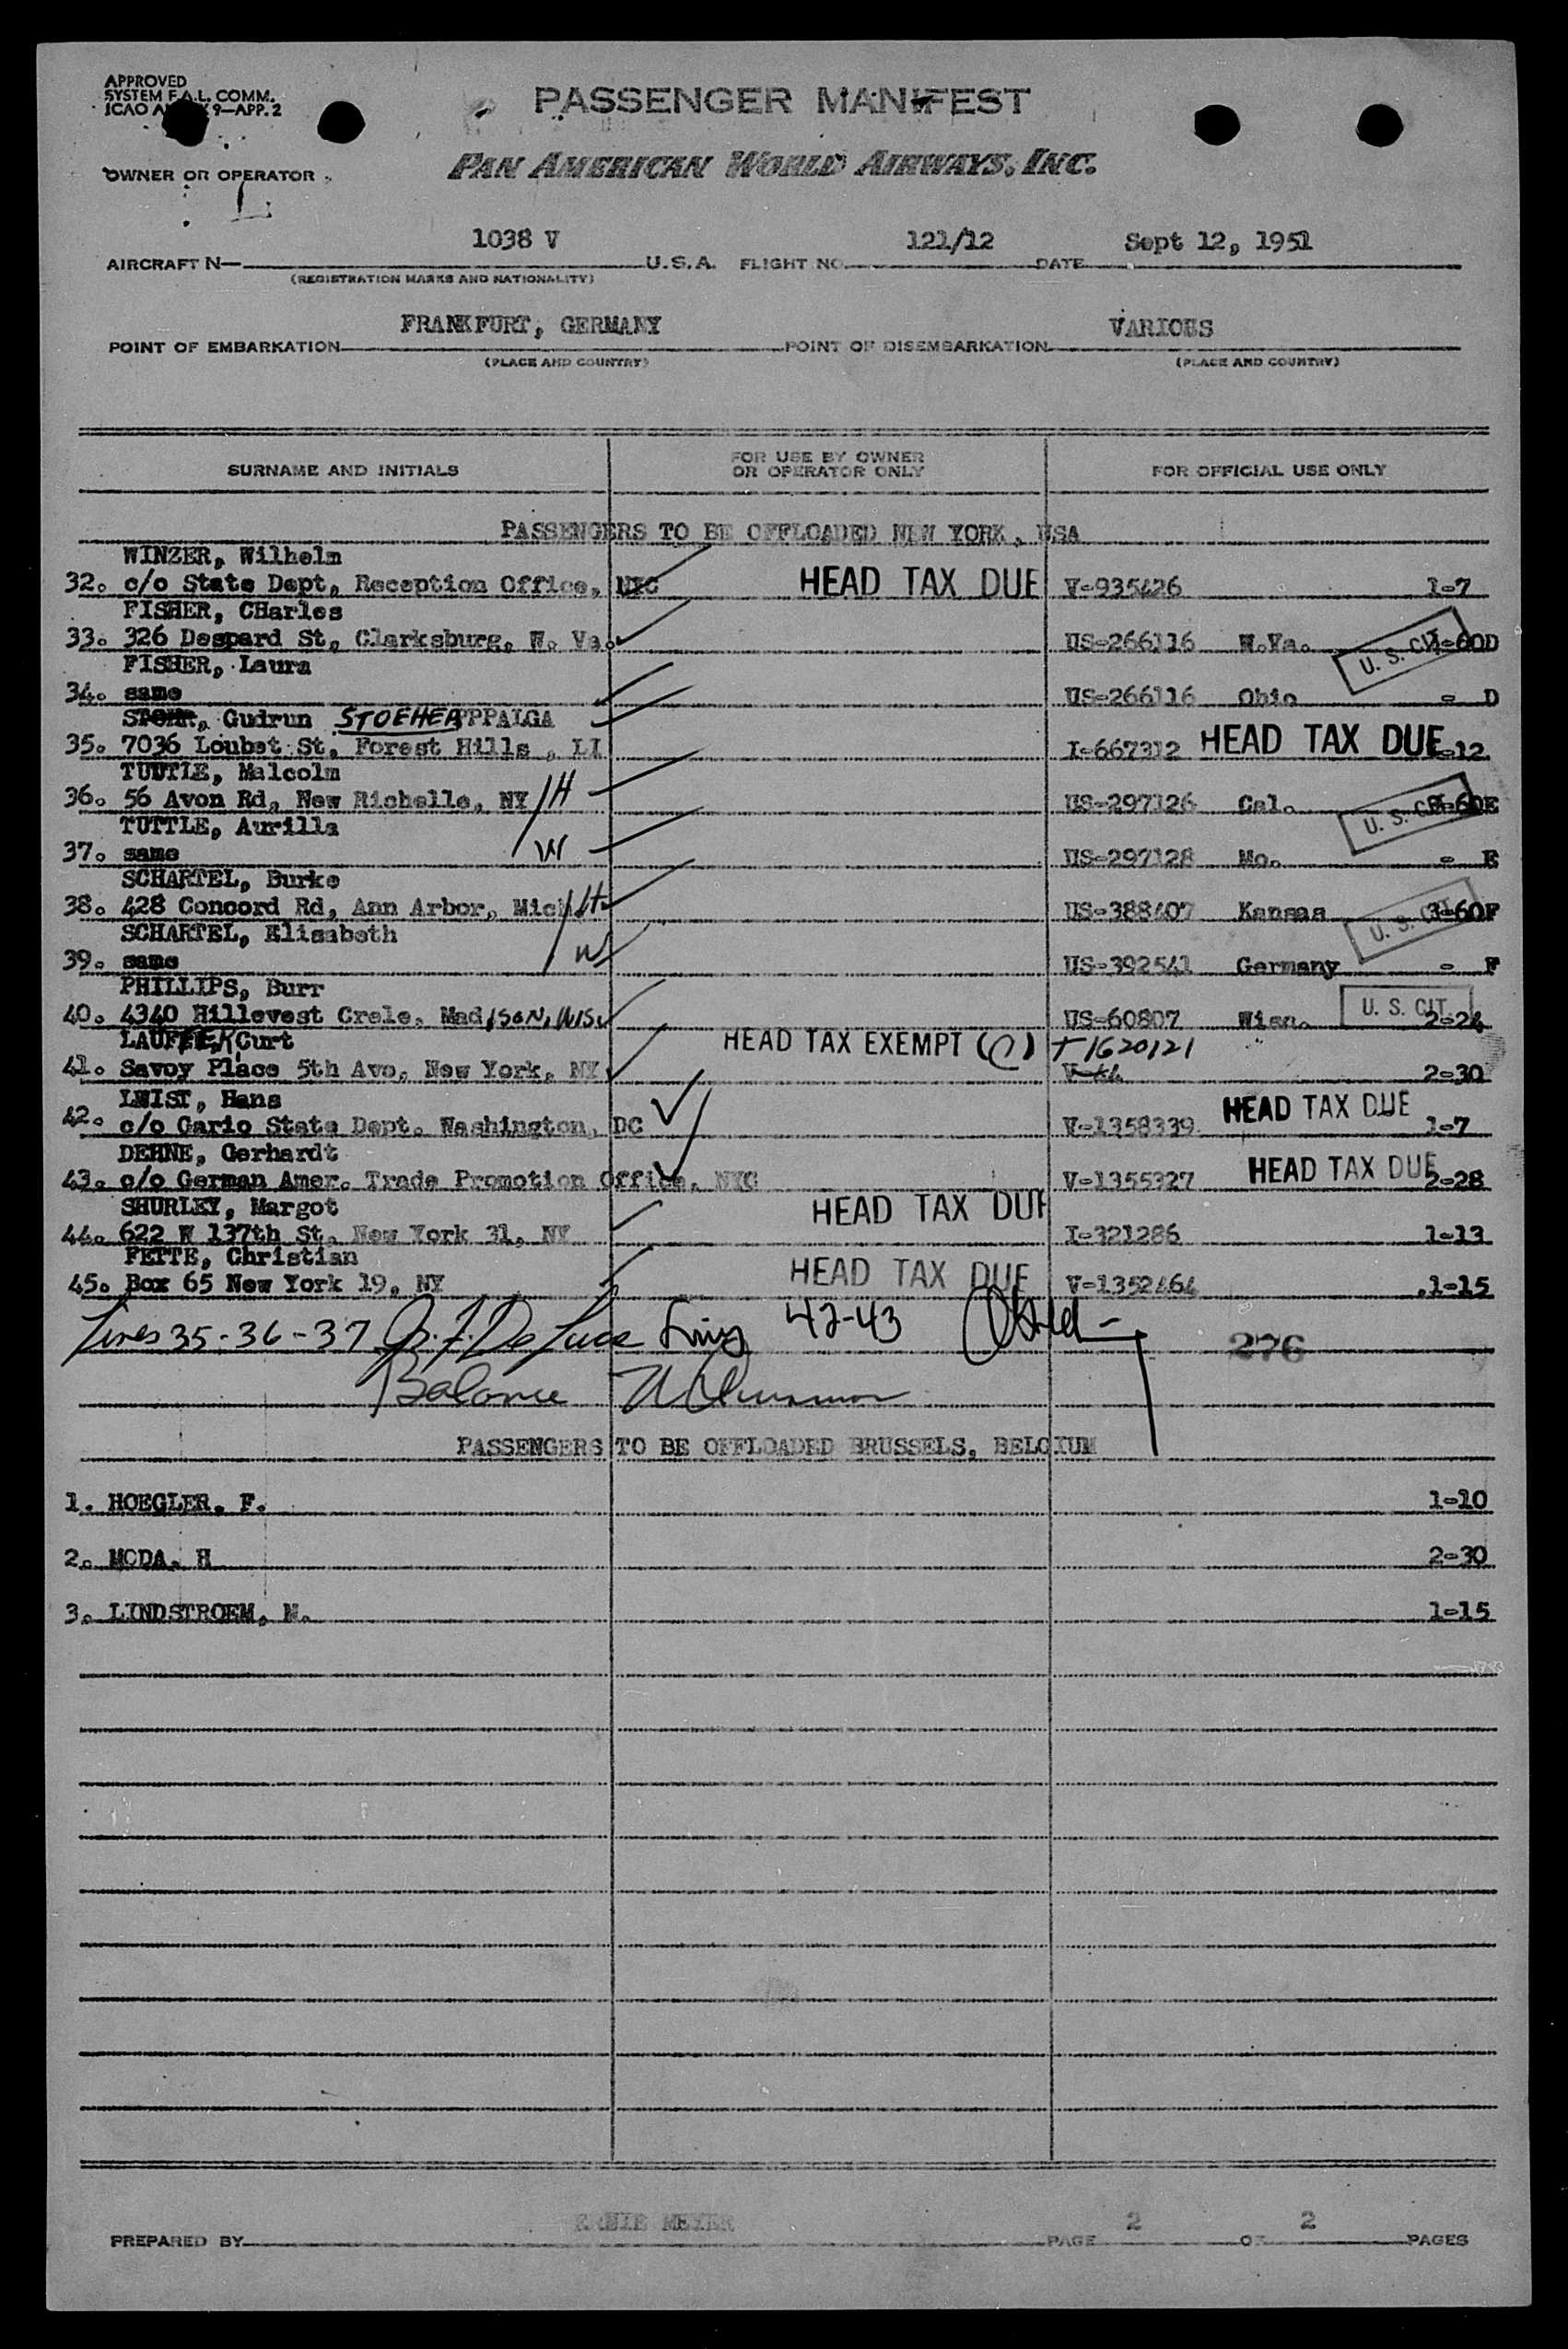 APPROVED
SYSTEM F.A.L. COMM.
ICAO 9—APP. 2
PASSENGER MANIFEST
OWNER OR OPERATOR
PAN AMERICAN WORLD AIRWAYS, INC.
1038 V 121/12 Sept 12, 1951
AIRCRAFT N— U.S.A. FLIGHT NO. DATE
(REGISTRATION MARKS AND NATIONALITY)
FRANKFURT, GERMANY VARIOUS
POINT OF EMBARKATION POINT OF DISEMBARKATION
(PLACE AND COUNTRY) (PLACE AND COUNTRY)
SURNAME AND INITIALS FOR USE BY OWNER OR OPERATOR ONLY FOR OFFICIAL USE ONLY
PASSENGERS TO BE OFFLOADED NEW YORK, USA
WINZER, Wilhelm
32. c/o State Dept, Reception Office, NYC HEAD TAX DUE V-935426 1-7
FISHER, CHarles
33. 326 Despard St, Clarksburg, W. Va. US-266116 W.Va. U. S. CIT 1-60D
FISHER, Laura
34. same US-266116 Ohio - D
Gudrun STOEHEA PPALGA
35. 7036 Loubet St, Forest Hills, LI I-667312 HEAD TAX DUE -12
TUTTLE, Malcolm
36. 56 Avon Rd, New Richelle, NY H US-297126 Cal. U. S. CIT -60E
TUTTLE, Aurilla
37. same W US-297128 Mo. - E
SCHARTEL, Burke
38. 428 Concord Rd, Ann Arbor, Mich H US-388407 Kansas U. S. CIT 3-60F
SCHARTEL, Elisabeth
39. same W US-392541 Germany - F
PHILLIPS, Burr
40. 4340 Hillevest Crcle, MadISON, WIS. US-60807 Wisn. U. S. CIT 2-24
Curt HEAD TAX EXEMPT T1620121
41. Savoy Place 5th Ave, New York, NY 2-30
LWIST, Hans
42. c/o Cario State Dept. Washington, DC V-1358339 HEAD TAX DUE 1-7
DEHNE, Gerhardt
43. c/o German Amer. Trade Promotion Office, NYC V-1355327 HEAD TAX DUE 2-28
SHURLEY, Margot
44. 622 W 137th St, New York 31, NY HEAD TAX DUE I-321286 1-13
FETTE, Christian
45. Box 65 New York 19, NY HEAD TAX DUE V-1352464 1-15
Lines 35-36-37 42-43 276
Balance
PASSENGERS TO BE OFFLOADED BRUSSELS, BELGIUM
1. HOEGLER, F. 1-10
2. MODA, H 2-30
3. LINDSTROEM, N. 1-15
ERNIE MEYER 2 2
PREPARED BY PAGE OF PAGES